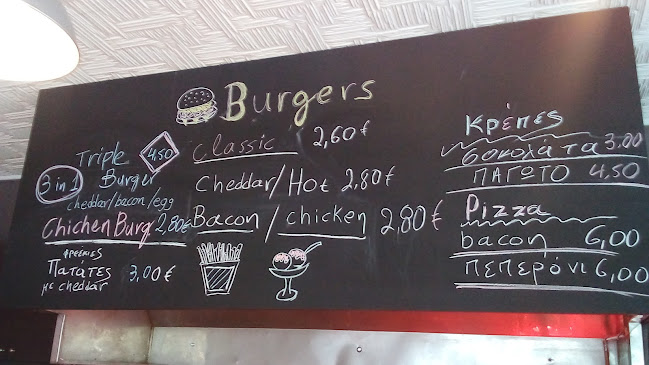 Burgers
Triple 4,50
3 in 1 Burger
cheddar/bacon/egg
Chichen Burg 2,80€
φρέσκιες
Πατάτες 3,00€
με cheddar
classic 2,60€
Cheddar/Hot 2,80€
Bacon/chicken 2,80€
Κρέπες
σοκολάτα 3.00
ΠΑΓΩΤΟ 4,50
Pizza
bacon 6,00
πεπερόνι 6,00